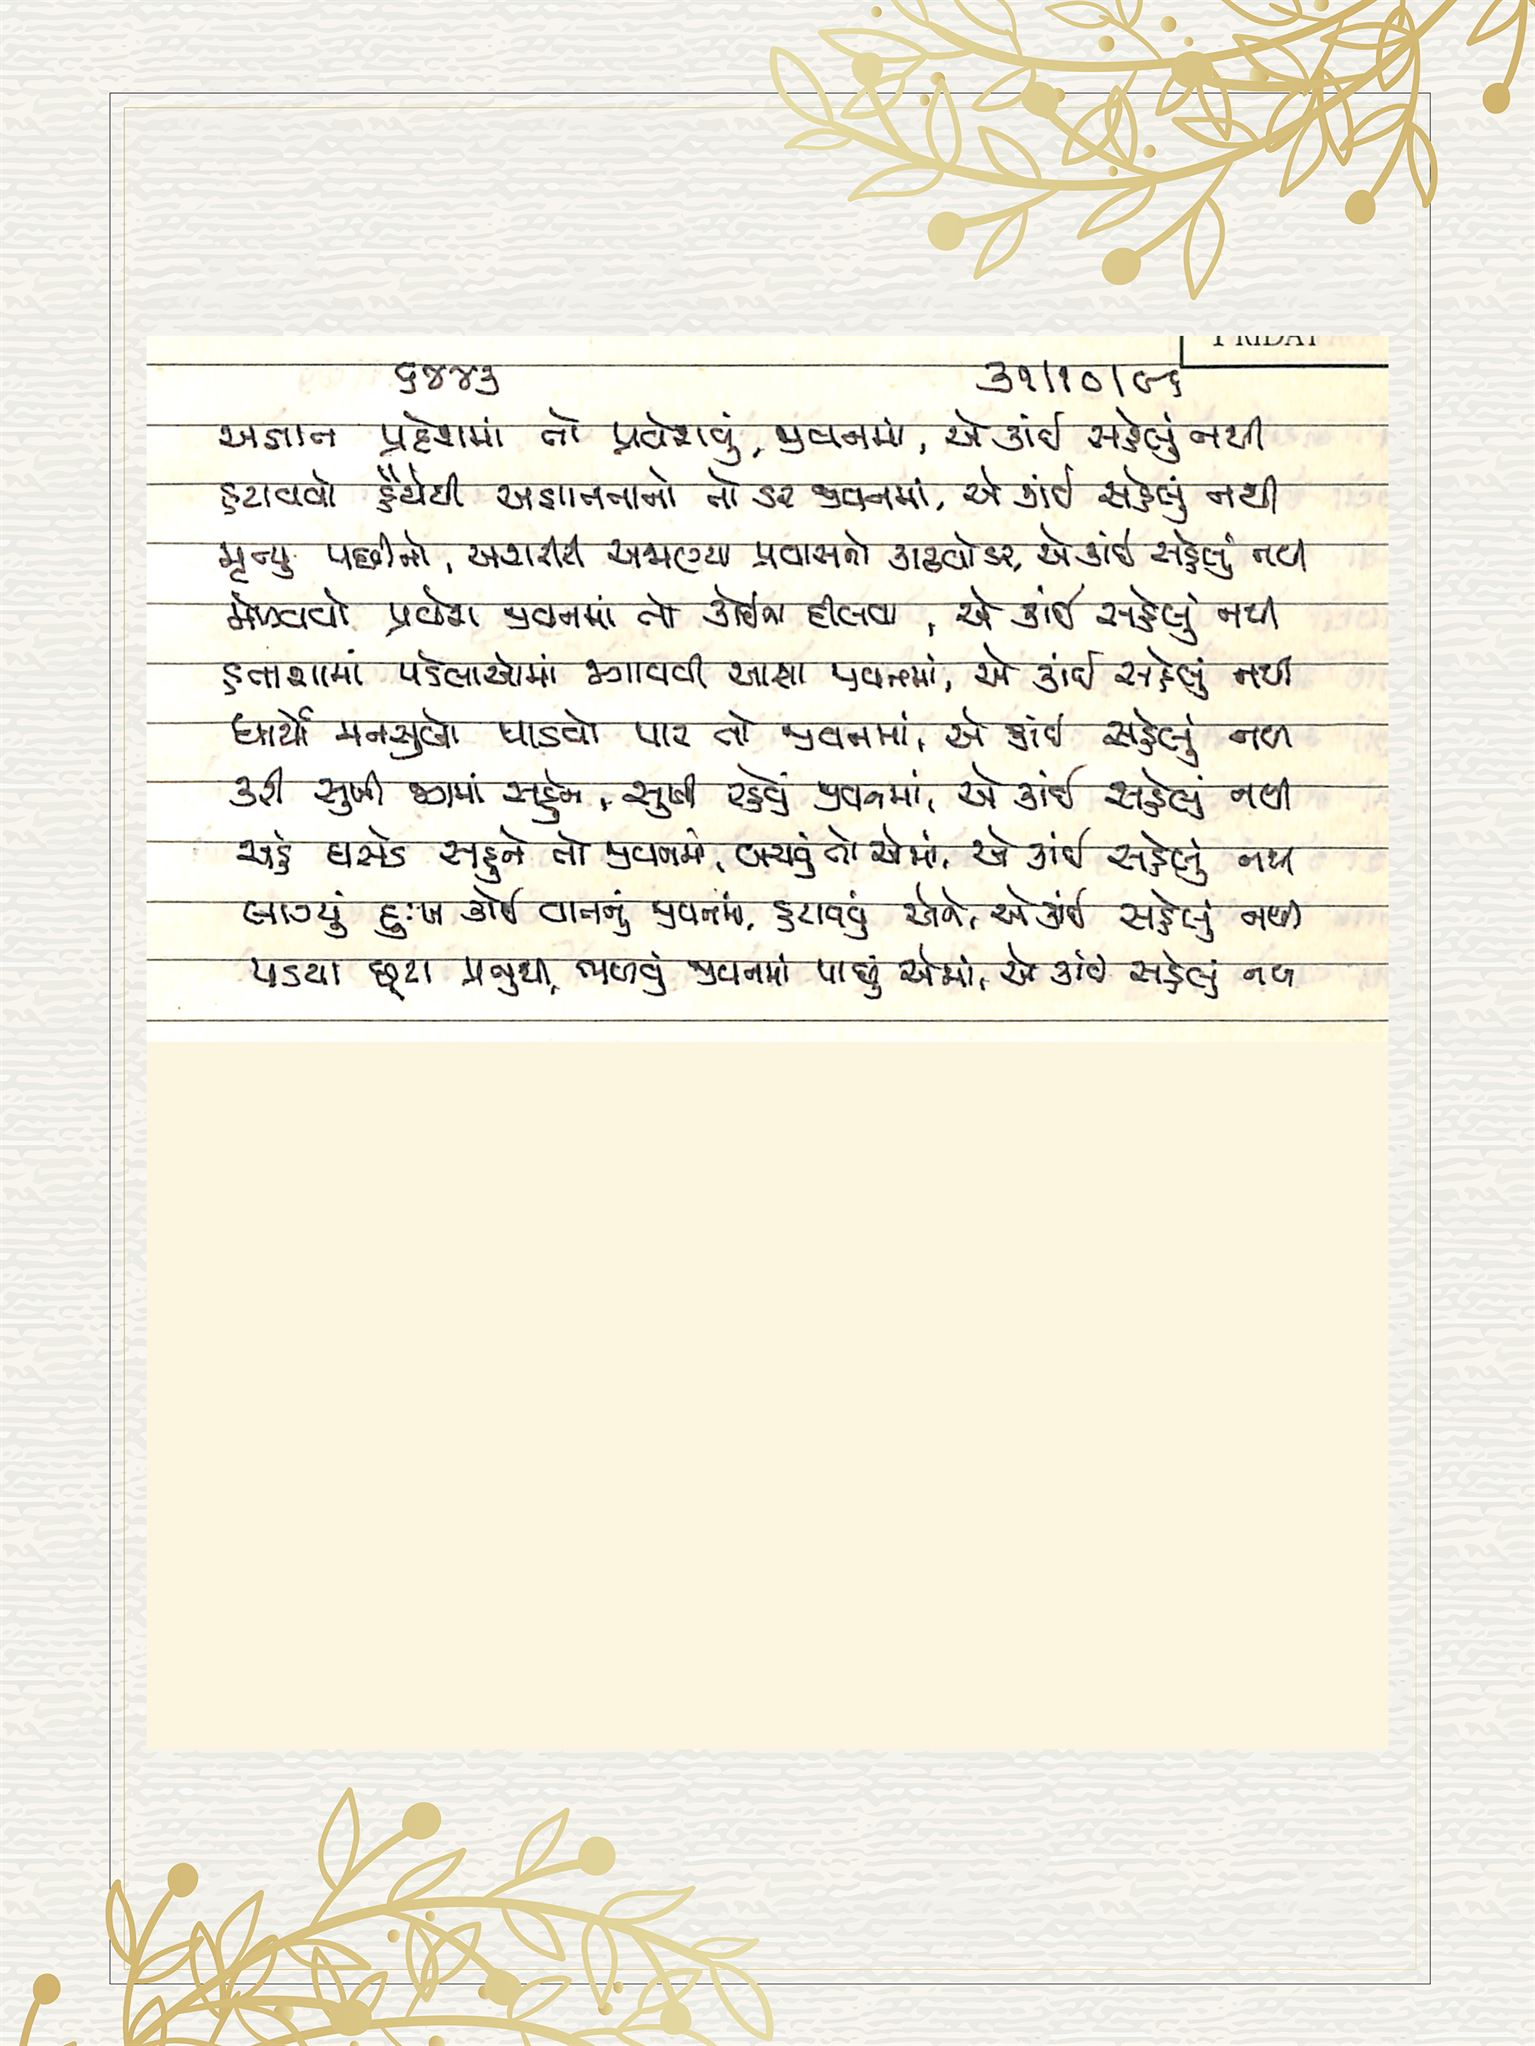 FRIDAY
૬૪૪૩ ૩૧/૧૦/૯૬
અજ્ઞાન પ્રદેશમાં તો પ્રવેશવું, જીવનમાં, એ કાંઈ સહેલું નથી
હટાવવો હૈયેથી અજ્ઞાનતાનો તો ડર જીવનમાં, એ કાંઈ સહેલું નથી
મૃત્યુ પછીનો, અશરીરી અજાણ્યા પ્રવાસનો કાઢવો ડર, એ કાંઈ સહેલું નથી
મેળવવો પ્રવેશ જીવનમાં તો કોઈના દીલવા, એ કાંઈ સહેલું નથી
હતાશામાં પડેલાઓમાં જગાવવી આશા જીવનમાં, એ કાંઈ સહેલું નથી
ધાર્યો મનસુબો પાડવો પાર તો જીવનમાં, એ કાંઈ સહેલું નથી
કરી સુખી જગમાં સહુને, સુખી રહેવું જીવનમાં, એ કાંઈ સહેલું નથી
અહં ઘસેડે સહુને તો જીવનમાં, બચવું તો એમાં, એ કાંઈ સહેલું નથી
લાગ્યું દુઃખ કોઈ વાતનું જીવનમાં, હટાવવું એને, એ કાંઈ સહેલું નથી
પડયા છૂટા પ્રભુથી, ભળવું જીવનમાં પાછું એમાં, એ કાંઈ સહેલું નથી